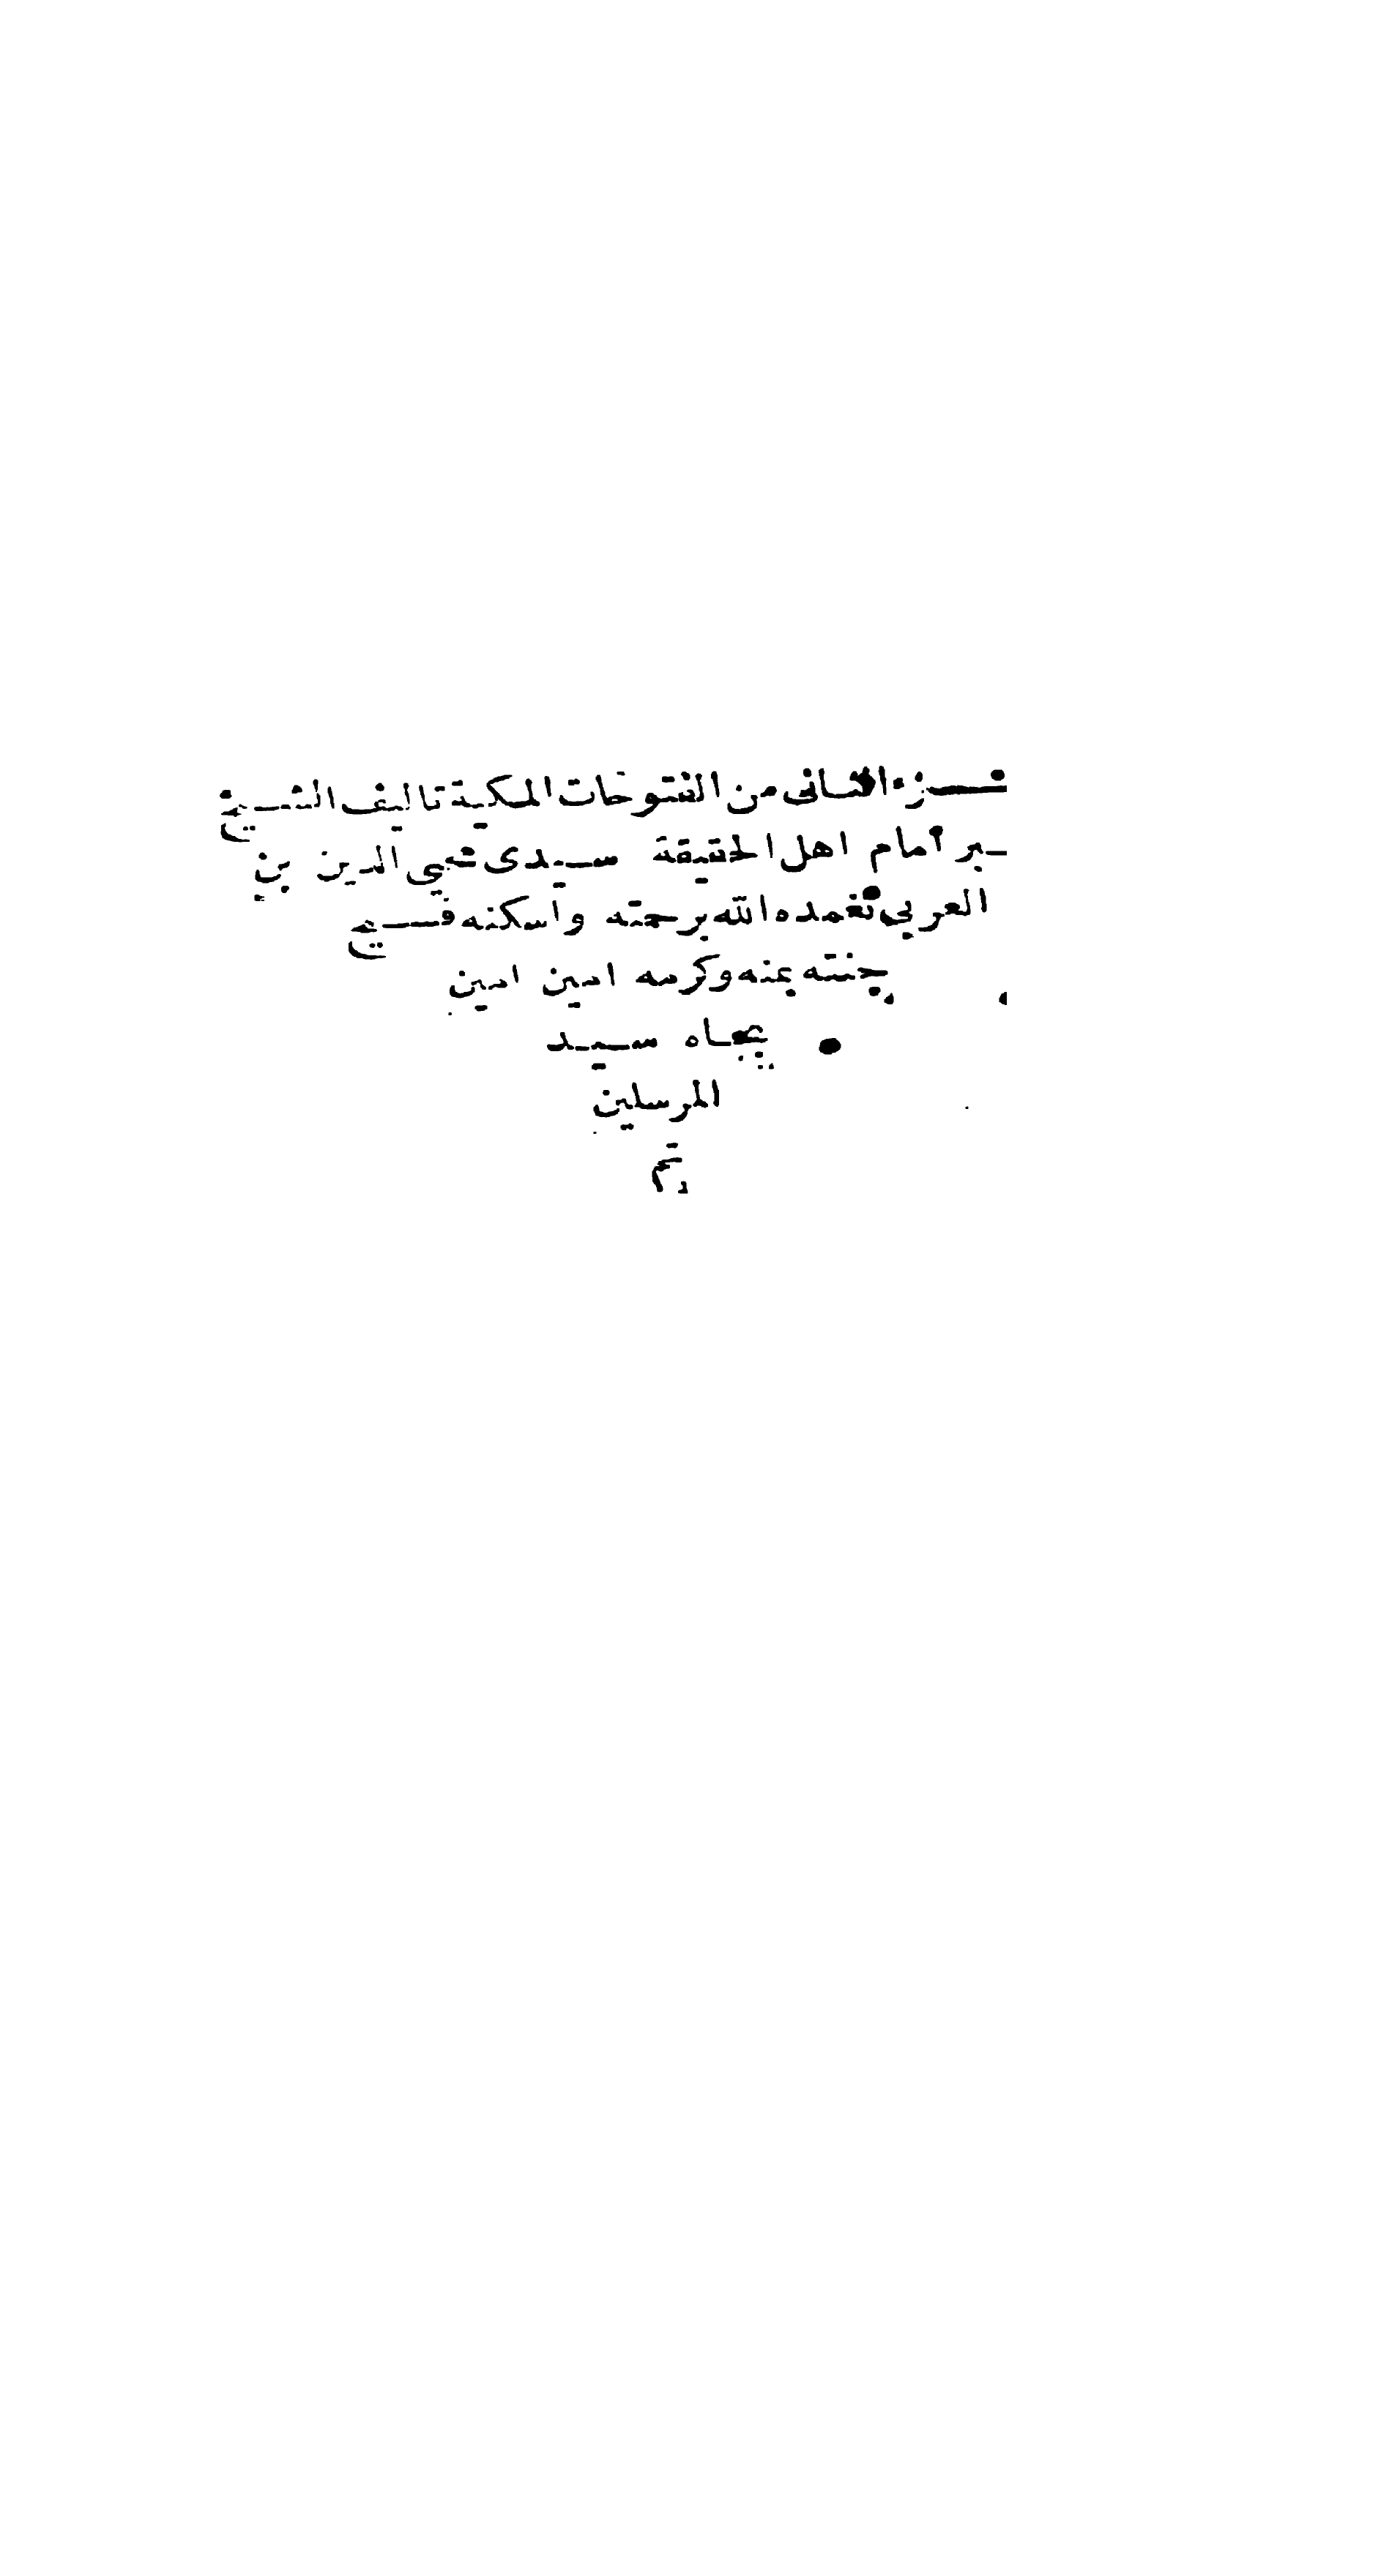 ـزء الثانى من الفتوحات المكية تاليف الشـيخ
ـبر امام اهل الحقيقة سـيدى محيي الدين بن
العربي تغمده الله برحمته واسكنه فسـيح
جنته بمنه وكرمه امين امين
بجـاه سـيـد
المرسلين
تم